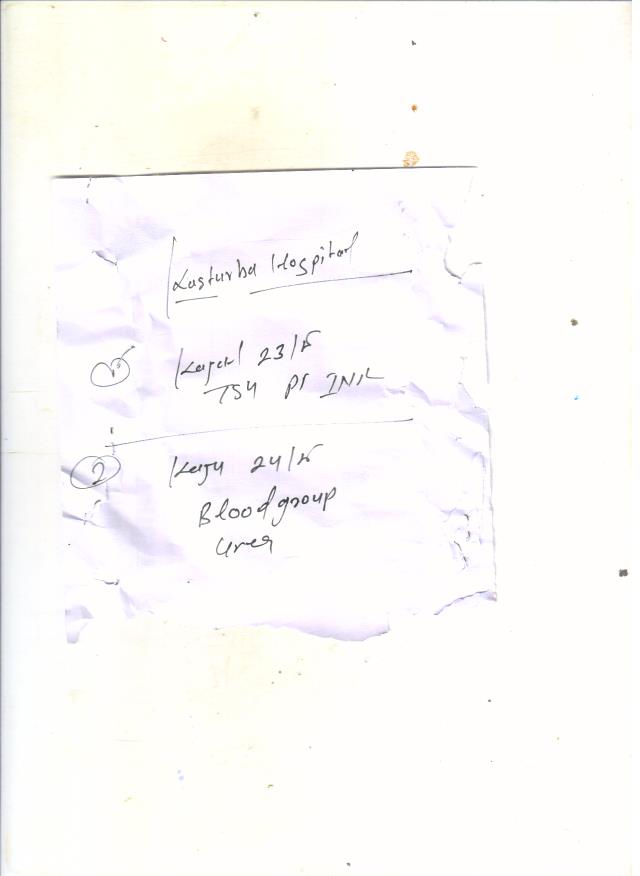 Kasturba Hospital
Kajal 23/F
TSH PT INR
2 Kaju 24/F
Blood group
Urea